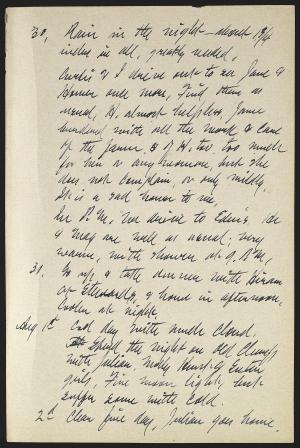 30, Rain in the night — about 1 3/4
inches in all, greatly needed,
Curtis & I drive out to see Jane &
Homer once more, Find them as
usual, H. almost helpless, Jane
burdened with all the work & care
of the farm, & of H. too, too much
for her or any woman, but she
does not complain, or only mildly,
It is a sad house to me,
In P.M. we drive to Eden's. He
& Mag are well as usual; very
warm, with shower at 9. P.M,
31. Go up & take dinner with Hiram
at Edwards, & home in afternoon,
Cooler at night,
Aug 1st Cool day with much cloud.
Spend the night on Old Clump
with Julian,
girls, Fine moon light, but
suffer some with cold.
2d Clear fine day, Julian goes home.